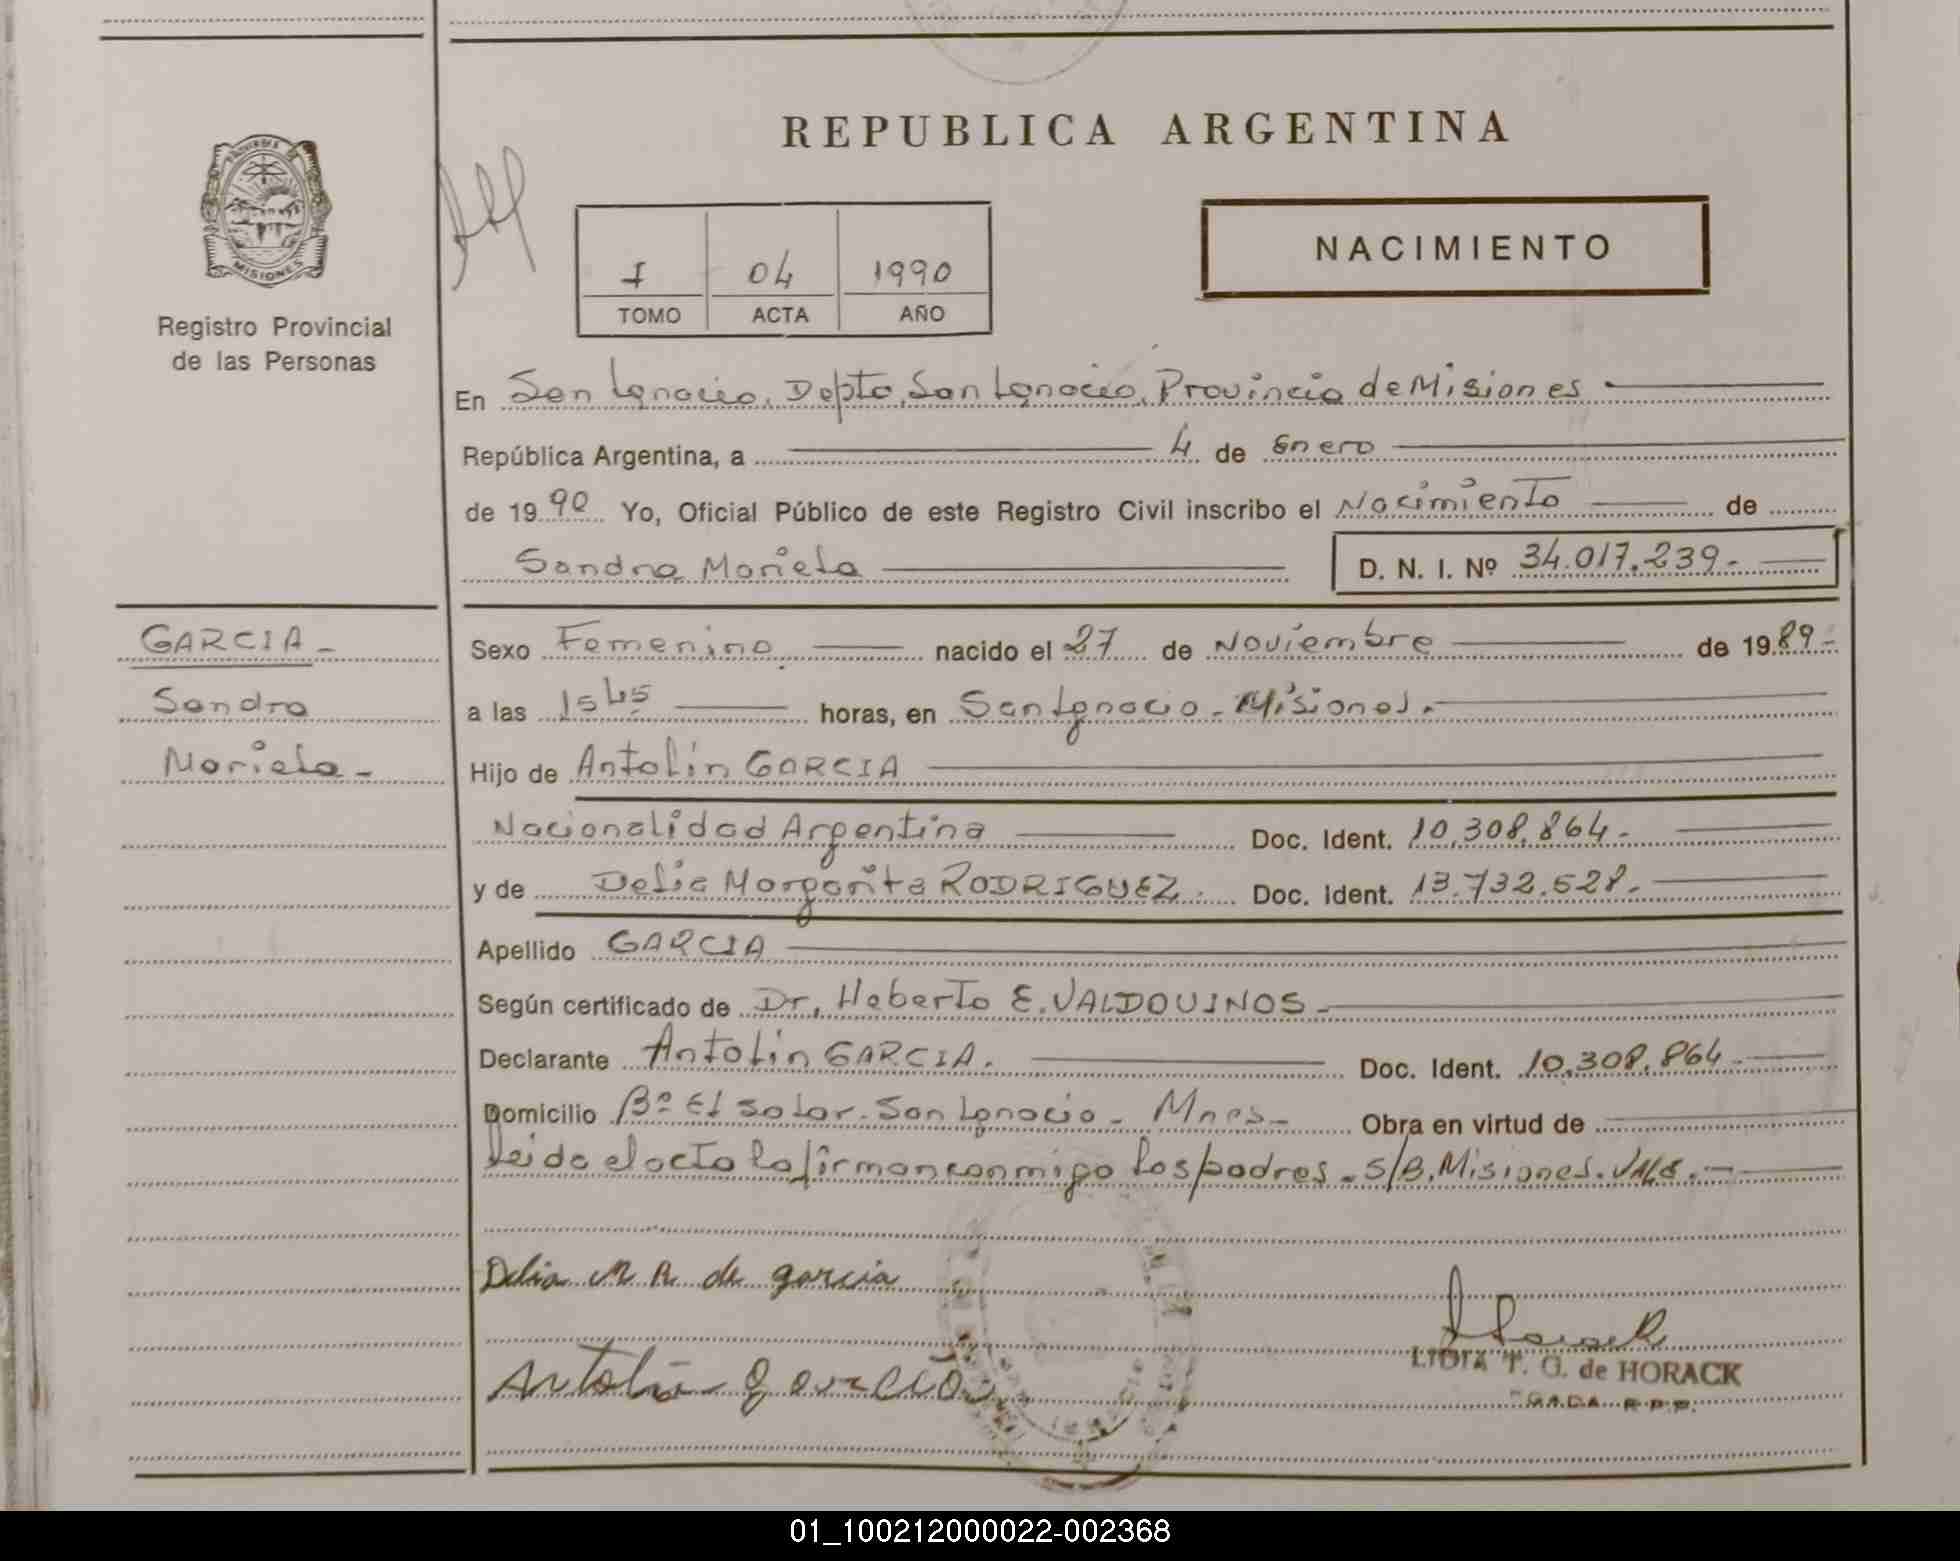 REPUBLICA ARGENTINA
PROVINCIA DE MISIONES
Registro Provincial
de las Personas
I 04 1990
TOMO ACTA AÑO
NACIMIENTO
En San Ignacio, Depto, San Ignacio, Provincia de Misiones
República Argentina, a 4 de Enero
de 1990 Yo, Oficial Público de este Registro Civil inscribo el Nacimiento de
Sandra Mariela D. N. I. Nº 34.017.239.-
GARCIA -
Sandra
Mariela -
Sexo Femenino nacido el 27 de Noviembre de 1989-
a las 15 45 horas, en San Ignacio - Misiones.
Hijo de Antolín GARCIA
Nacionalidad Argentina Doc. Ident. 10.308.864.-
y de Delia Margarita RODRIGUEZ. Doc. Ident. 13.732.528.-
Apellido GARCIA
Según certificado de Dr. Heberto E. VALDOVINOS -
Declarante Antolín GARCIA. Doc. Ident. 10.308.864 -
Domicilio Bº El Solar - San Ignacio - Mnes - Obra en virtud de
Leida el acta la firman conmigo los padres - S/B. Misiones. VALE. -
Delia M R de garcia
Antolin garcia
LIDIA T. G. de HORACK
R.P.P.
01_100212000022-002368